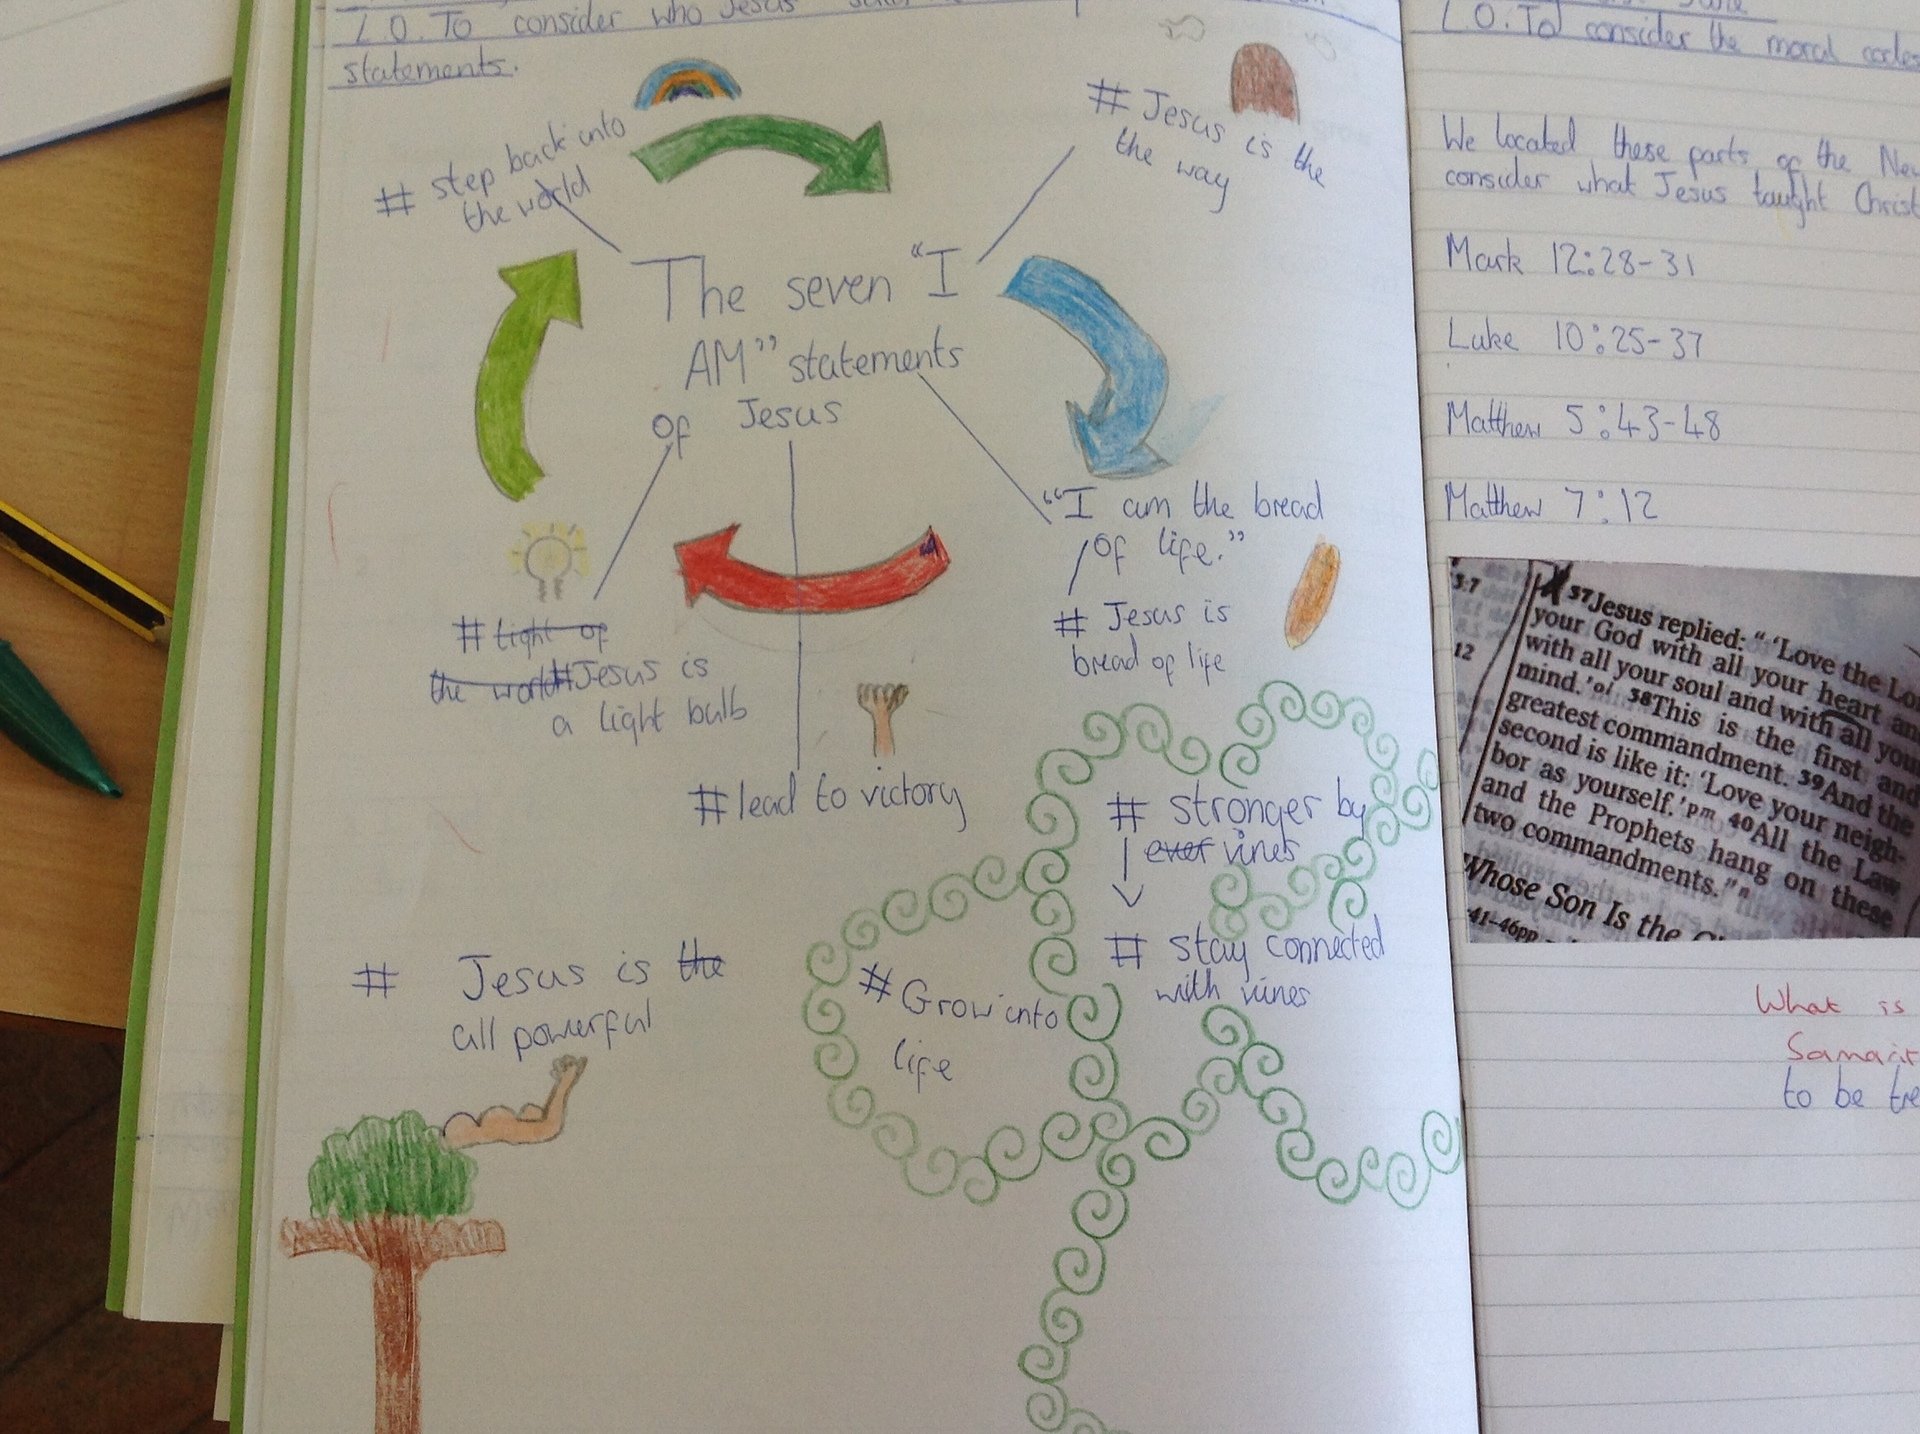 L.O. To consider who Jesus
statements.
# step back into
the world
# Jesus is the
the way
The seven "I
AM" statements
of Jesus
"I am the bread
of life."
# Jesus is
bread of life
# Light of
the world #Jesus is
a light bulb
#lead to victory
# stronger by
ever vines
# stay connected
with vines
# Grow into
life
# Jesus is the
all powerful
L.O. To consider the moral codes
We located these parts of the New
consider what Jesus taught Christ
Mark 12:28-31
Luke 10:25-37
Matthew 5:43-48
Matthew 7:12
3:7
12
37Jesus replied: "'Love the Lo
your God with all your heart an
with all your soul and with all your
mind.' 38This is the first and
greatest commandment. 39And the
second is like it: 'Love your neigh-
bor as yourself.' 40All the Law
and the Prophets hang on these
two commandments."
Whose Son Is the
41-46pp
What is
Samarit
to be tre